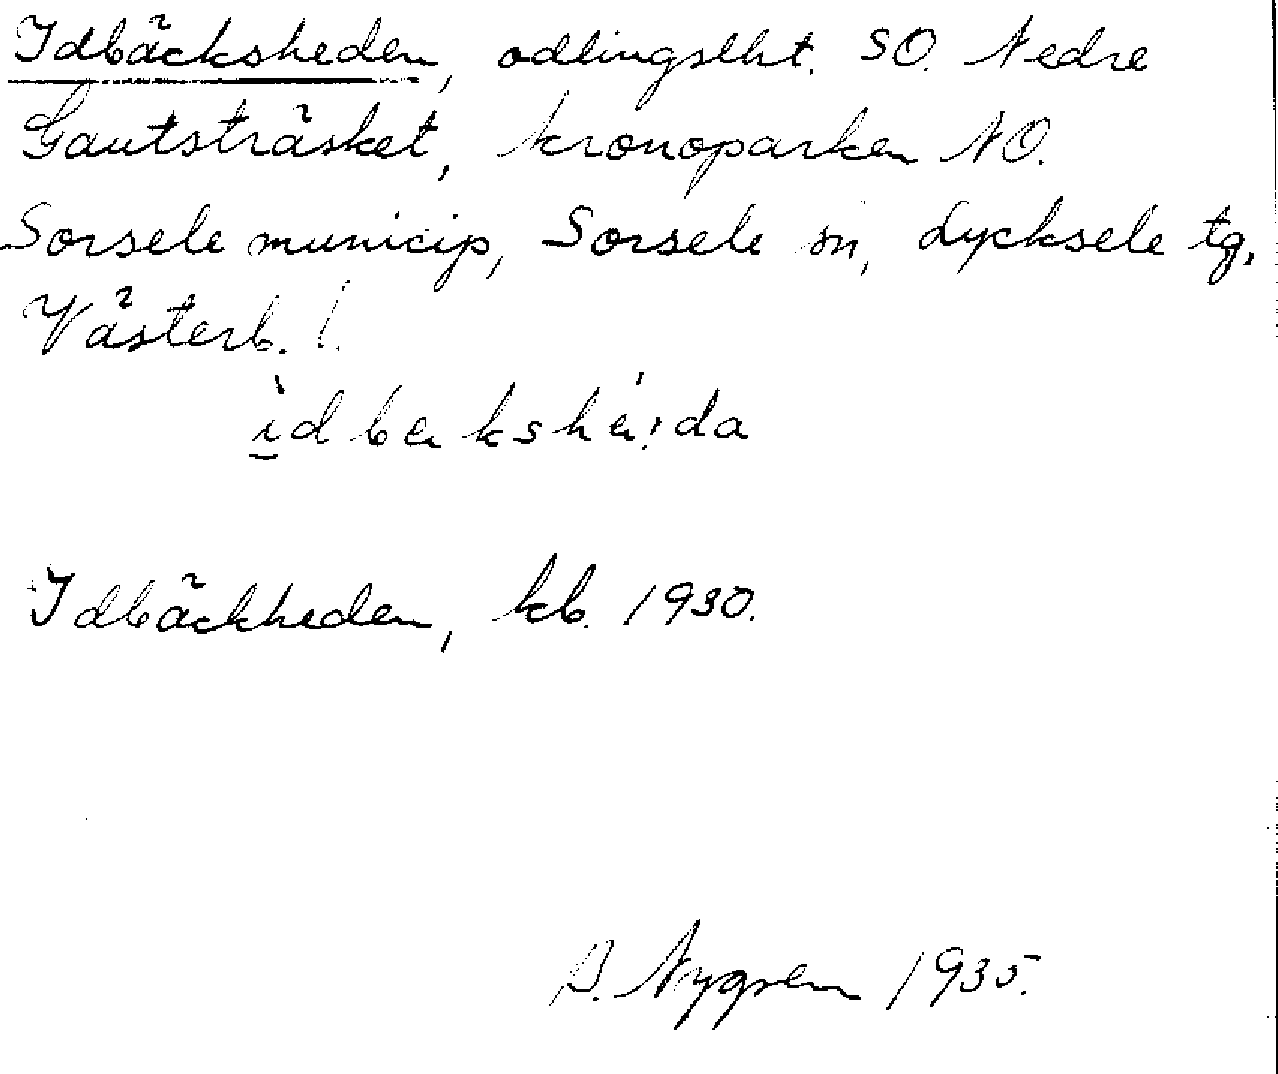 Idbäcksheden, odlingslht. SO. Nedre
Gautsträsket, kronoparken NO.
Sorsele municip, Sorsele sn, Lycksele tg.
Västerb. l.
Idbäckheden, kb. 1930.
Nygren 1935.